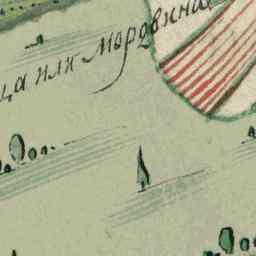 ца или Моровина